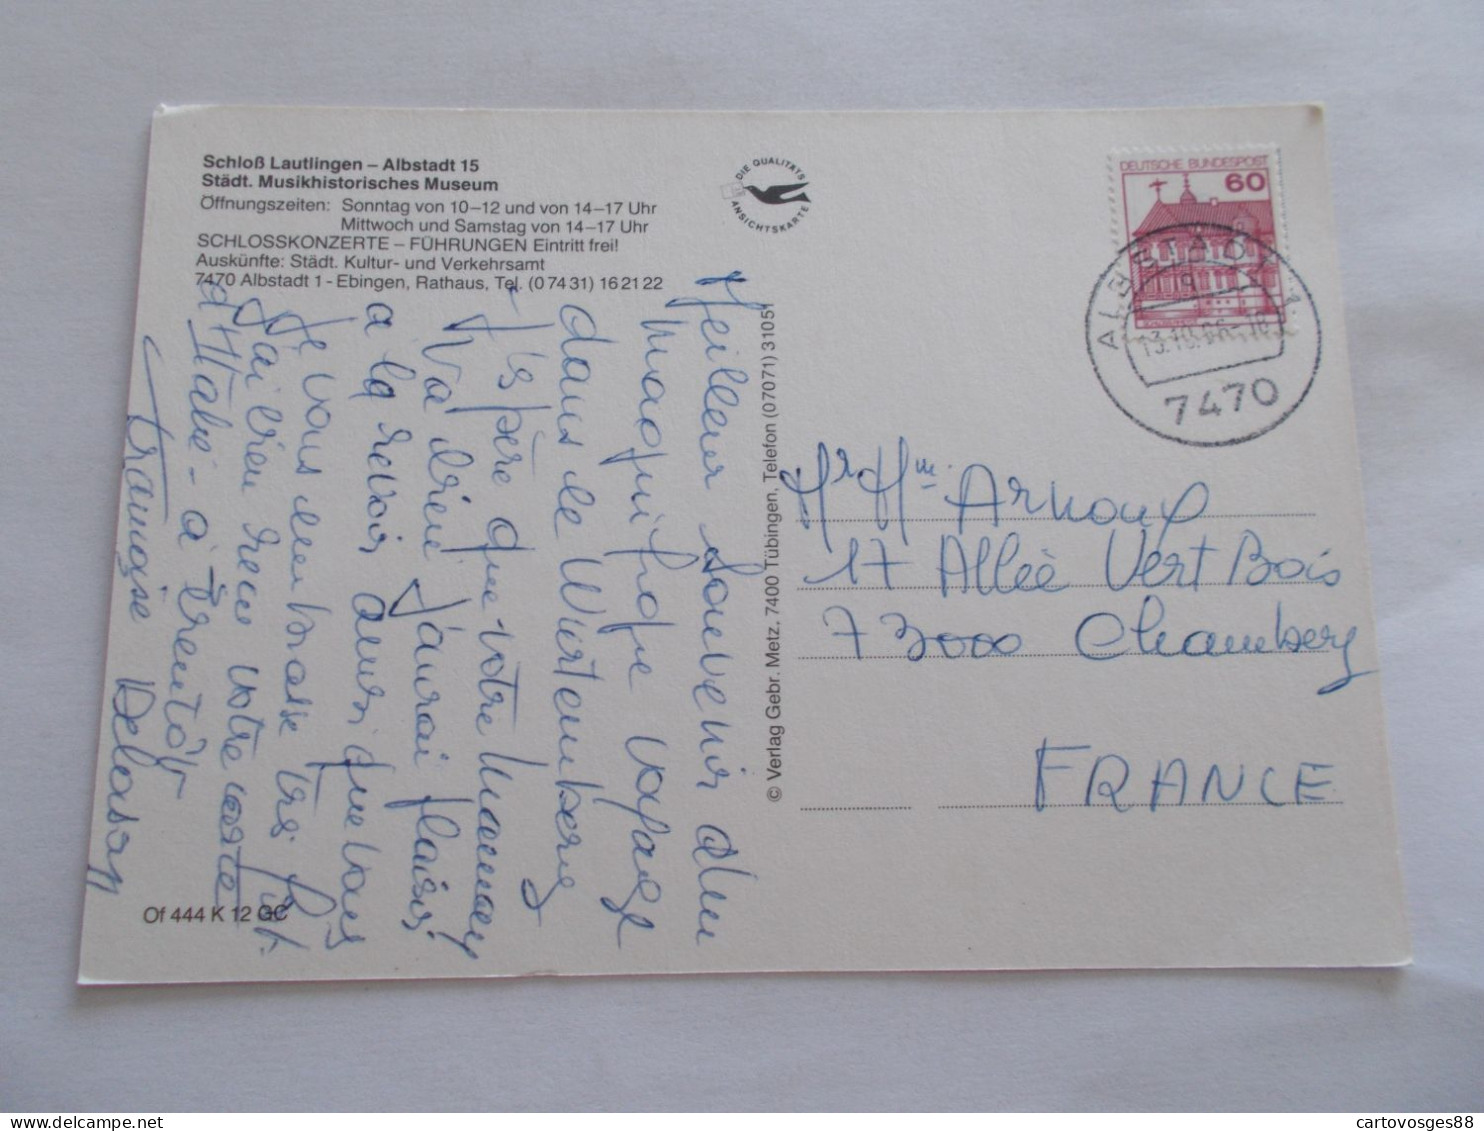 Schloß Lautlingen – Albstadt 15
Städt. Musikhistorisches Museum
Öffnungszeiten: Sonntag von 10–12 und von 14–17 Uhr
Mittwoch und Samstag von 14–17 Uhr
SCHLOSSKONZERTE – FÜHRUNGEN Eintritt frei!
Auskünfte: Städt. Kultur- und Verkehrsamt
7470 Albstadt 1 - Ebingen, Rathaus, Tel. (0 74 31) 16 21 22
DIE QUALITÄTS
ANSICHTSKARTE
DEUTSCHE BUNDESPOST
60
ALBSTADT 1
13.10.86-18
7470
Meilleur souvenir d'un
magnifique voyage
dans le Wurtemberg
J'espère que votre Maman
va bien j'aurai plaisir
a la revoir ainsi que vous
Je vous embrasse très fort.
J'ai bien recu votre carte
d'Italie - à bientôt
Françoise
© Verlag Gebr. Metz, 7400 Tübingen, Telefon (07071) 31051
Mr Mme Arnoux
17 Allée Vert Bois
73000 Chambery
FRANCE
Of 444 K 12 GC
cartovosges88